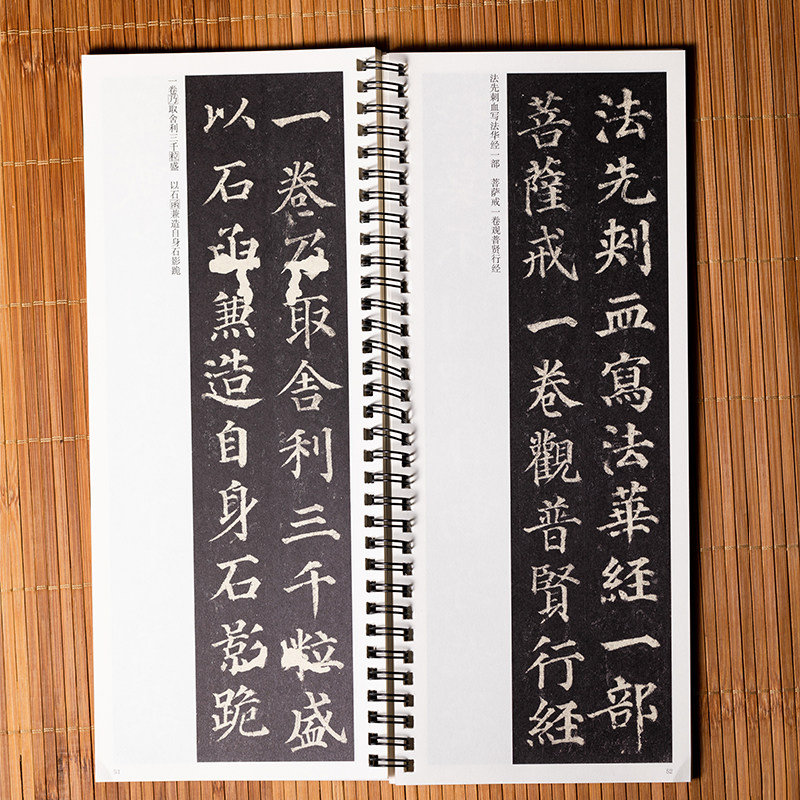 法先刺血寫法華經一部
菩薩戒一卷觀普賢行經
法先刺血写法华经一部 菩萨戒一卷观普贤行经
52
一卷乃取舍利三千粒盛
以石函兼造自身石影跪
一卷乃取舍利三千粒盛 以石函兼造自身石影跪
53